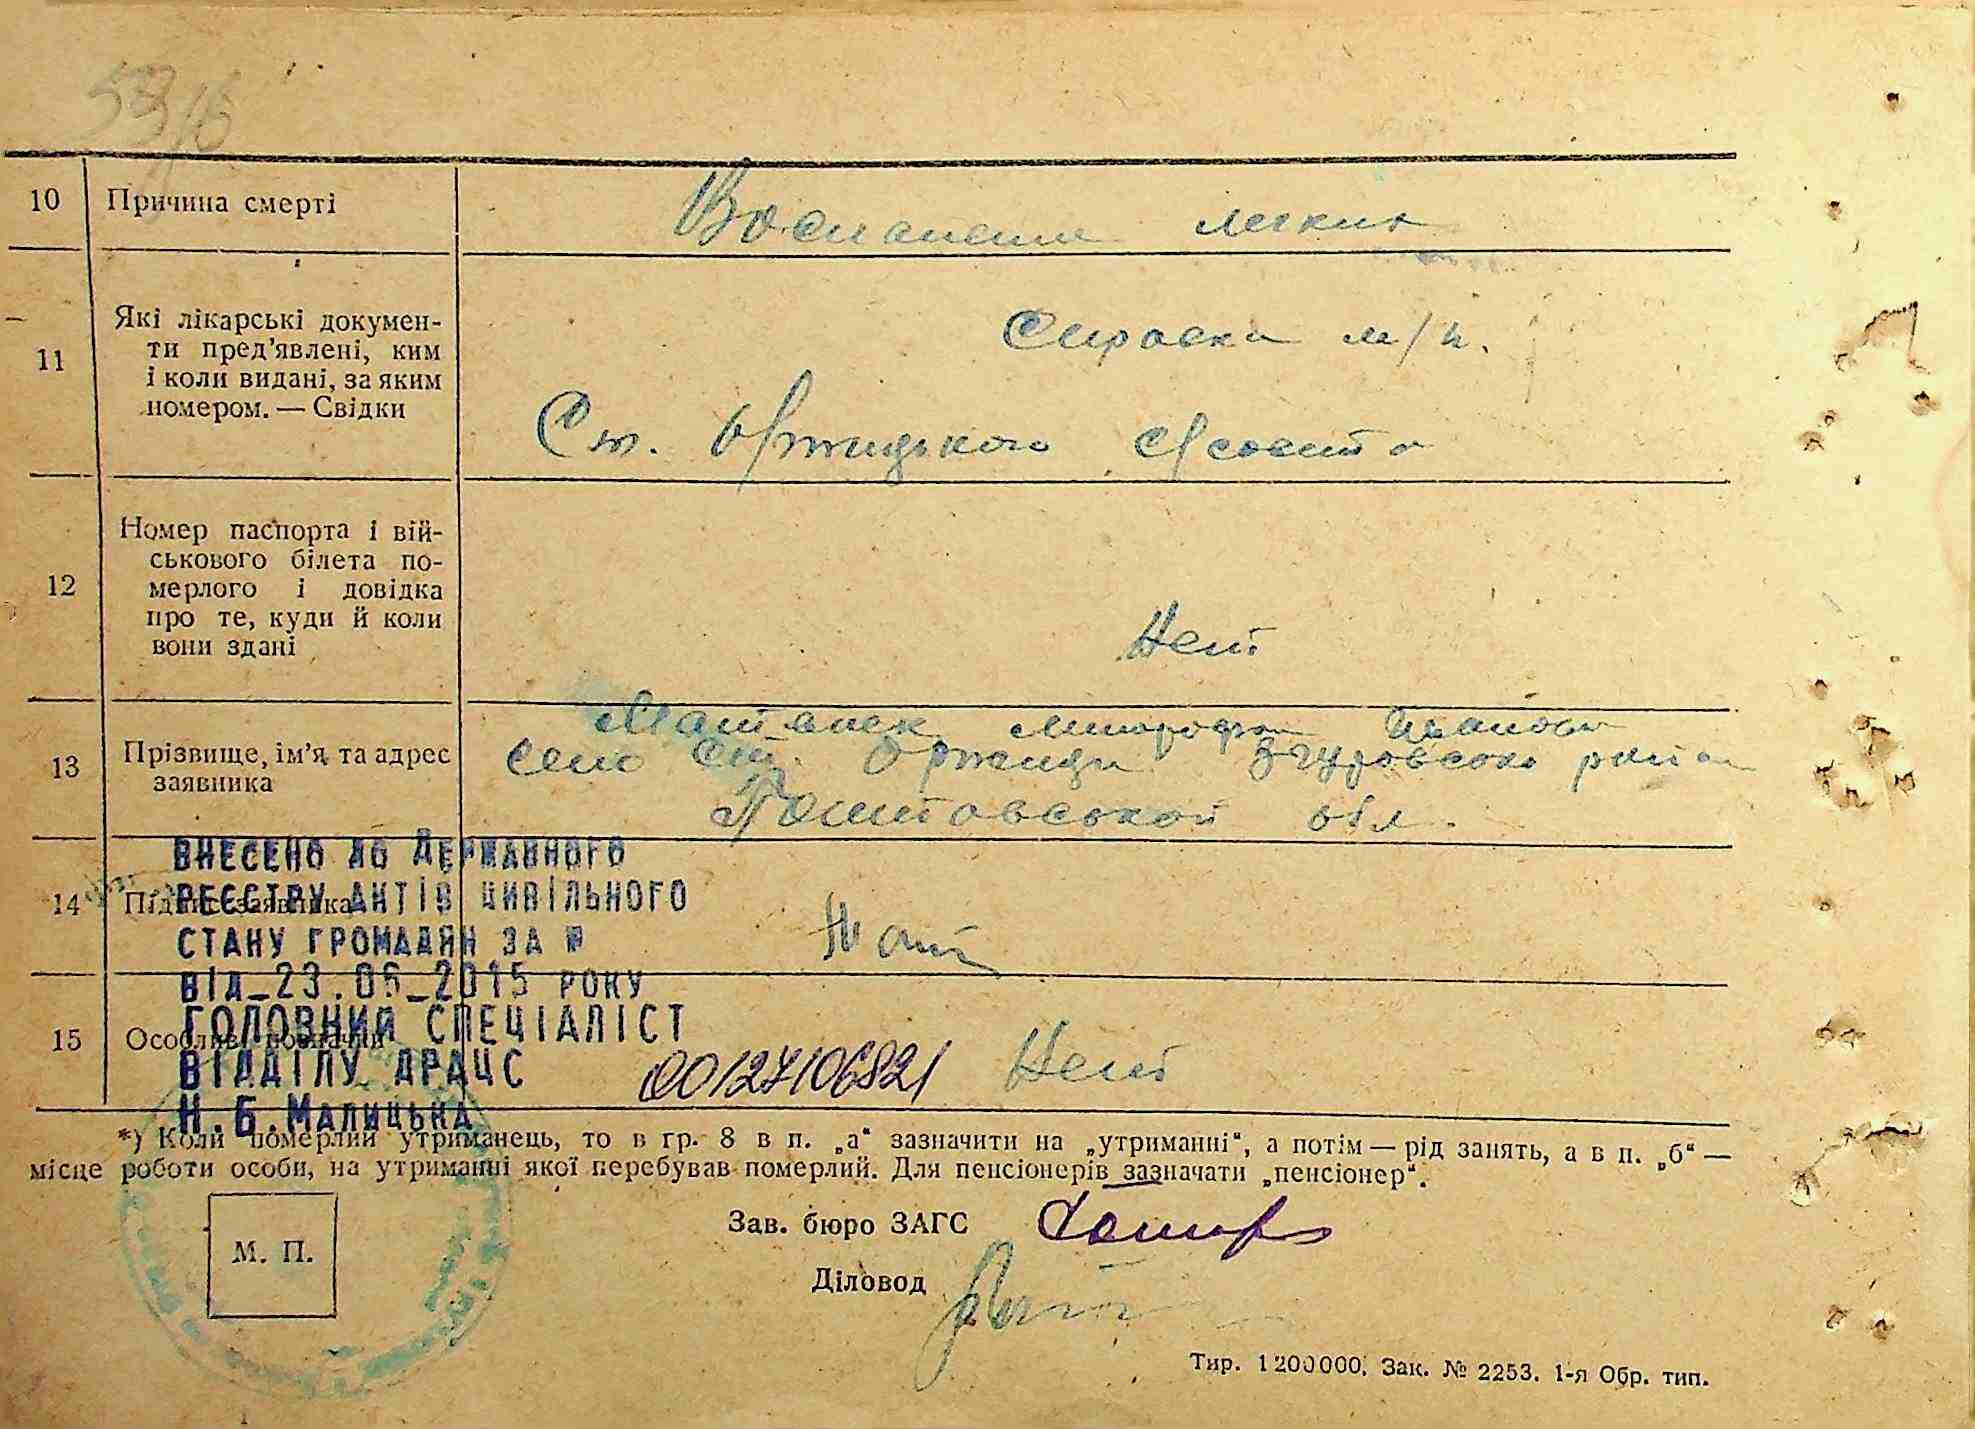 10 Причина смерті Воспаление легких
11 Які лікарські докумен-
ти пред’явлені, ким
і коли видані, за яким
номером. — Свідки
Справка м/п.
Ст. Оржицького с/совета
12 Номер паспорта і вій-
ськового білета по-
мерлого і довідка
про те, куди й коли
вони здані
Нет
13 Прізвище, ім’я та адрес
заявника
Село Ст. Оржица Згуровского района
Полтавської обл.
14 Підпис заявника
15 Особливі позначки
Нет
ВНЕСЕНО ДО ДЕРЖАВНОГО
РЕЄСТРУ АКТІВ ЦИВІЛЬНОГО
СТАНУ ГРОМАДЯН ЗА №
ВІД 23.06 2015 РОКУ
ГОЛОВНИЙ СПЕЦІАЛІСТ
ВІДДІЛУ ДРАЦС
Н.Б.МАЛИЦЬКА
00127106821
*) Коли померлий утриманець, то в гр. 8 в п. „а“ зазначити на „утриманні“, а потім — рід занять, а в п. „б“ —
місце роботи особи, на утриманні якої перебував померлий. Для пенсіонерів зазначати „пенсіонер“.
М. П.
Зав. бюро ЗАГС
Діловод
Тир. 1200000. Зак. № 2253. 1-я Обр. тип.